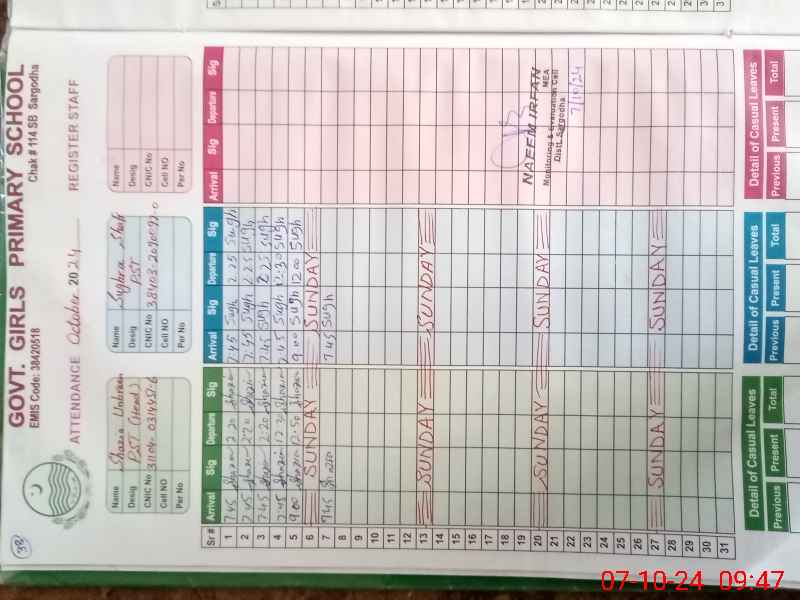 33
GOVT. GIRLS PRIMARY SCHOOL
EMIS Code: 38420518
Chak # 114 SB Sargodha
ATTENDANCE October 2024 REGISTER STAFF
Name Shazia
Desig PST (Head)
CNIC No
Cell NO
Per No
Name Sughra
Desig PST
CNIC No
Cell NO
Per No
Name
Desig
CNIC No
Cell NO
Per No
Sr # Arrival Sig Departure Sig Arrival Sig Departure Sig Arrival Sig Departure Sig
1 7.45 Shazia 2.20 Shazia 7.45 Sugh 2.25 Sugh
2 7.45 Shazia 2.20 Shazia 7.45 Sugh 2.25 Sugh
3 7.45 Shazia 2.20 Shazia 7.45 Sugh 2.25 Sugh
4 7.45 Shazia 12.20 Shazia 7.45 Sugh 12.30 Sugh
5 9.00 Shazia 12.50 Shazia 9.00 Sugh 12.00 Sugh
6 SUNDAY SUNDAY
7 7.45 Shazia 7.45 Sugh
8
9
10
11
12
13 SUNDAY SUNDAY
14
15
16
17
18
19
20 SUNDAY SUNDAY
21
22
23
24
25
26
27 SUNDAY SUNDAY
28
29
30
31
NAEEM IRFAN
MEA
Monitoring & Evaluation Cell
Distt. Sargodha
7/10/24
Detail of Casual Leaves
Previous Present Total
Detail of Casual Leaves
Previous Present Total
Detail of Casual Leaves
Previous Present Total
07-10-24 09:47